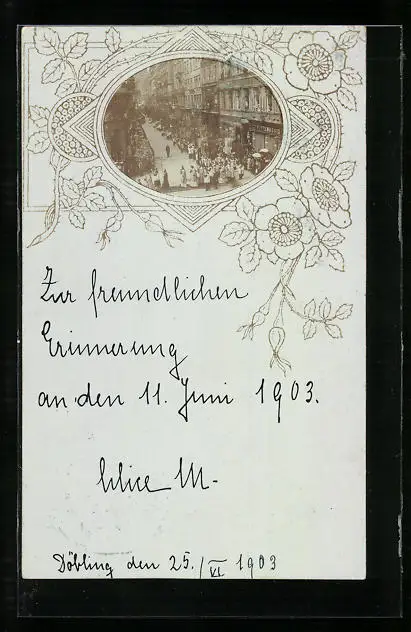 Zur freundlichen
Erinnerung
an den 11. Juni 1903.
Alice M-
Döbling den 25./VI 1903